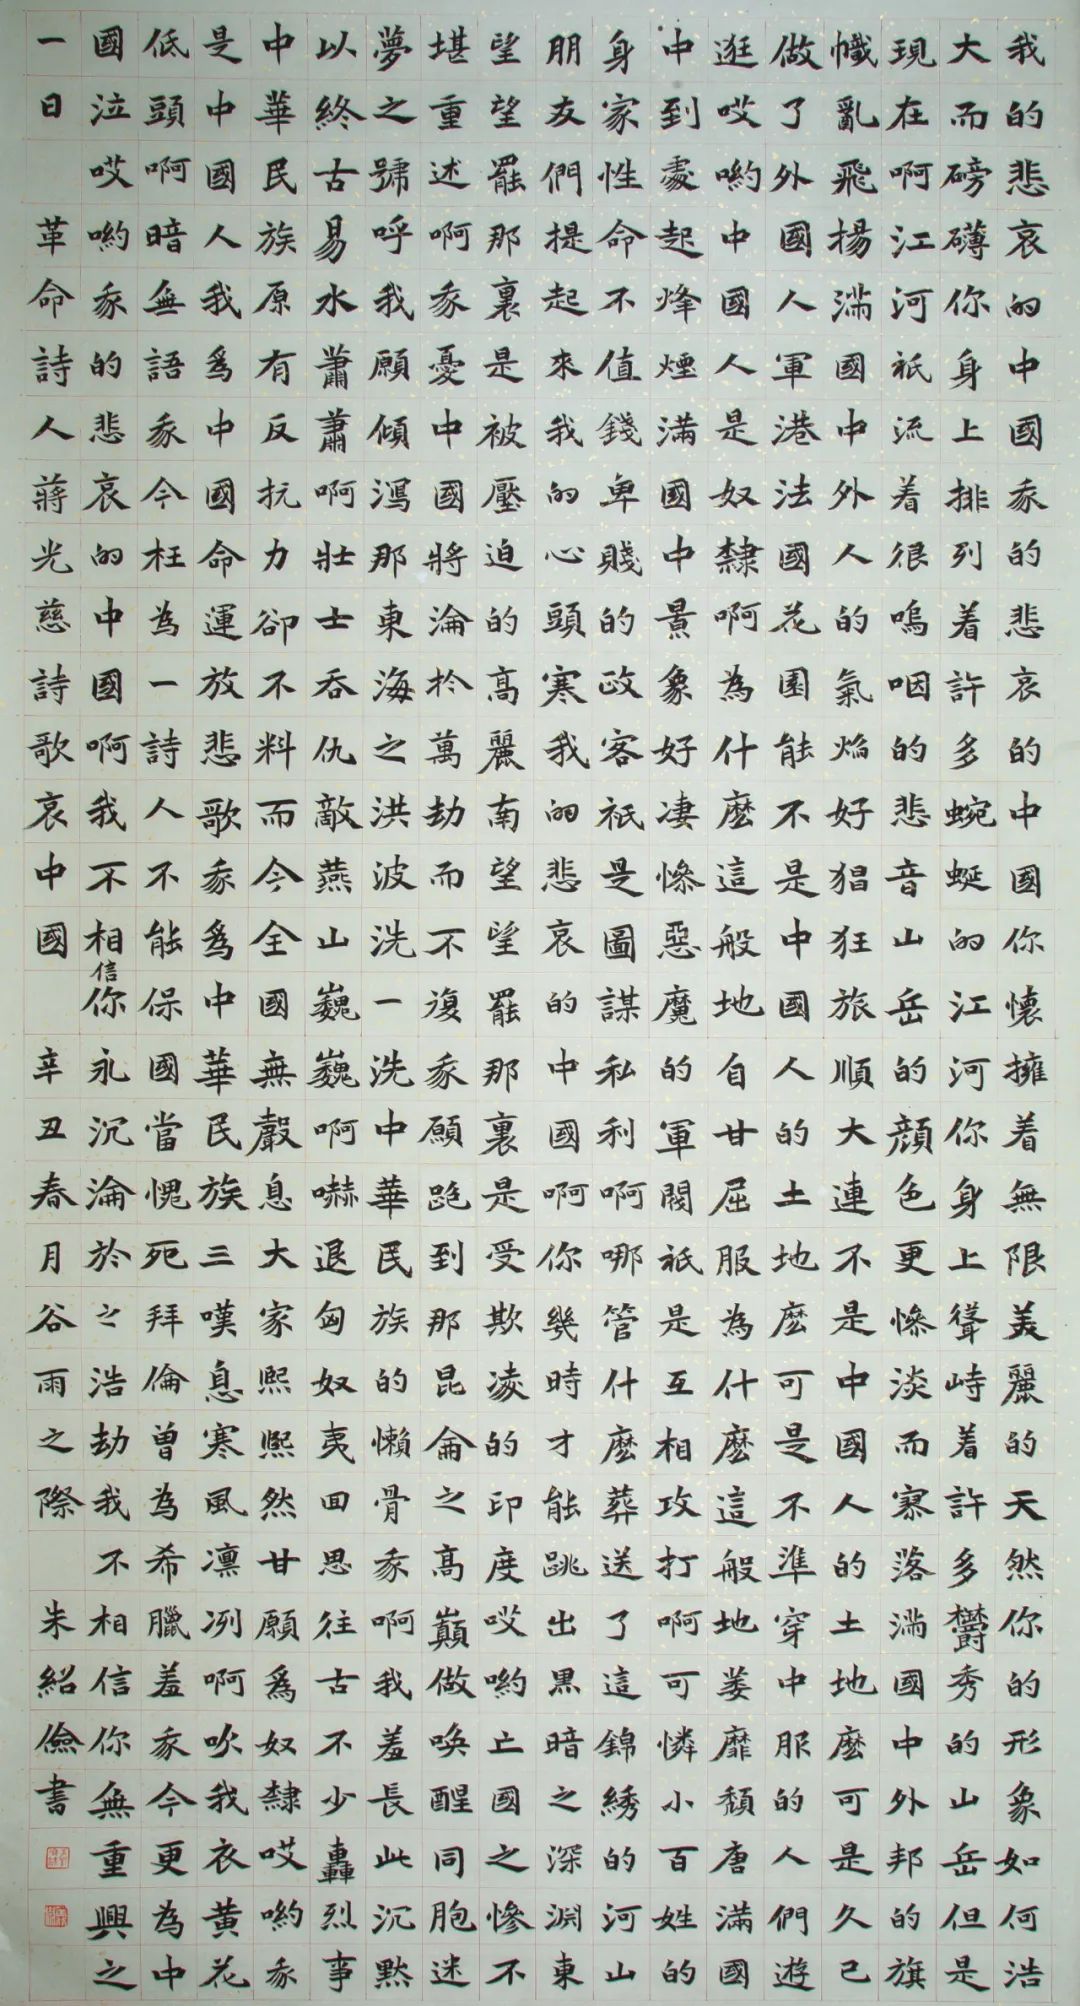 我的悲哀的中國我的悲哀的中國你懷擁着無限美麗的天然你的形象如何浩
大而磅礴你身上排列着許多蜿蜒的江河你身上聳峙着許多鬱秀的山岳但是
現在啊江河祇流着很嗚咽的悲音山岳的顔色更慘淡而寥落滿國中外邦的旗
幟亂飛揚滿國中外人的氣焰好猖狂旅順大連不是中國人的土地麽可是久已
做了外國人軍港法國花園能不是中國人的土地麽可是不準穿中服的人們遊
逛哎喲中國人是奴隸啊為什麽這般地自甘屈服為什麽這般地萎靡頽唐滿國
中到處起烽煙滿國中景象好凄慘惡魔的軍閥祇是互相攻打啊可憐小百姓的
身家性命不值錢卑賤的政客祇是圖謀私利啊哪管什麽葬送了這錦綉的河山
朋友們提起來我的心頭寒我的悲哀的中國啊你幾時才能跳出黑暗之深淵東
望望罷那裏是被壓迫的高麗南望望罷那裏是受欺凌的印度哎喲亡國之慘不
堪重述啊我憂中國將淪於萬劫而不復我願跑到那昆侖之高巔做喚醒同胞迷
夢之號呼我願傾瀉那東海之洪波洗一洗中華民族的懶骨我啊我羞長此沉默
以終古易水蕭蕭啊壯士吞仇敵燕山巍巍啊嚇退匈奴夷回思往古不少轟烈事
中華民族原有反抗力卻不料而今全國無聲息大家熙熙然甘願爲奴隸哎喲我
是中國人我爲中國命運放悲歌我爲中華民族三嘆息寒風凜冽啊吹我衣黃花
低頭啊暗無語我今枉為一詩人不能保國當愧死拜倫曾為希臘羞我今更為中
國泣哎喲我的悲哀的中國啊我不相信你永沉淪於之浩劫我不相信你無重興之
一日 革命詩人蔣光慈詩歌哀中國 辛丑春月谷雨之際 朱紹儉書